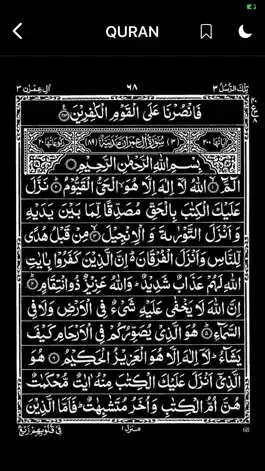 QURAN
اٰل عمرٰن ٣
٦٨
تلك الرسل ٣
فَانْصُرْنَا عَلَى الْقَوْمِ الْكٰفِرِيْنَ
اٰيَاتُهَا ٢٠٠ (٣) سُوْرَةُ اٰلِ عِمْرٰنَ مَدَنِيَّةٌ (٨٩) رُكُوْعَاتُهَا ٢٠
بِسْمِ اللّٰهِ الرَّحْمٰنِ الرَّحِيْمِ
الٓمّٓ ۙ اللّٰهُ لَاۤ اِلٰهَ اِلَّا هُوَ ۙ الْحَيُّ الْقَيُّوْمُ ؕ نَزَّلَ
عَلَيْكَ الْكِتٰبَ بِالْحَقِّ مُصَدِّقًا لِّمَا بَيْنَ يَدَيْهِ
وَاَنْزَلَ التَّوْرٰىةَ وَالْاِنْجِيْلَ ۙ مِنْ قَبْلُ هُدًى
لِّلنَّاسِ وَاَنْزَلَ الْفُرْقَانَ ؕ اِنَّ الَّذِيْنَ كَفَرُوْا بِاٰيٰتِ
اللّٰهِ لَهُمْ عَذَابٌ شَدِيْدٌ ؕ وَاللّٰهُ عَزِيْزٌ ذُو انْتِقَامٍ
اِنَّ اللّٰهَ لَا يَخْفٰى عَلَيْهِ شَيْءٌ فِي الْاَرْضِ وَلَا فِي
السَّمَآءِ ؕ هُوَ الَّذِيْ يُصَوِّرُكُمْ فِي الْاَرْحَامِ كَيْفَ
يَشَآءُ ؕ لَاۤ اِلٰهَ اِلَّا هُوَ الْعَزِيْزُ الْحَكِيْمُ هُوَ
الَّذِيْۤ اَنْزَلَ عَلَيْكَ الْكِتٰبَ مِنْهُ اٰيٰتٌ مُّحْكَمٰتٌ
هُنَّ اُمُّ الْكِتٰبِ وَاُخَرُ مُتَشٰبِهٰتٌ ؕ فَاَمَّا الَّذِيْنَ
فِيْ قُلُوْبِهِمْ زَيْغٌ
منزل ١